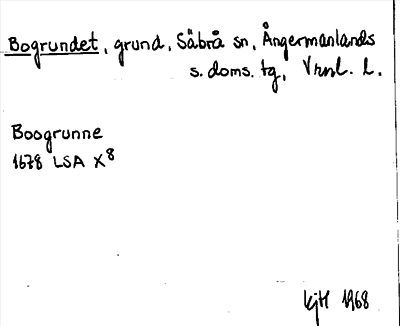 Bogrundet, grund, Säbrå sn, Ångermanlands
s. doms. tg, Vrnl. L.
Boogrunne
1678 LSA X8
KjH 1968